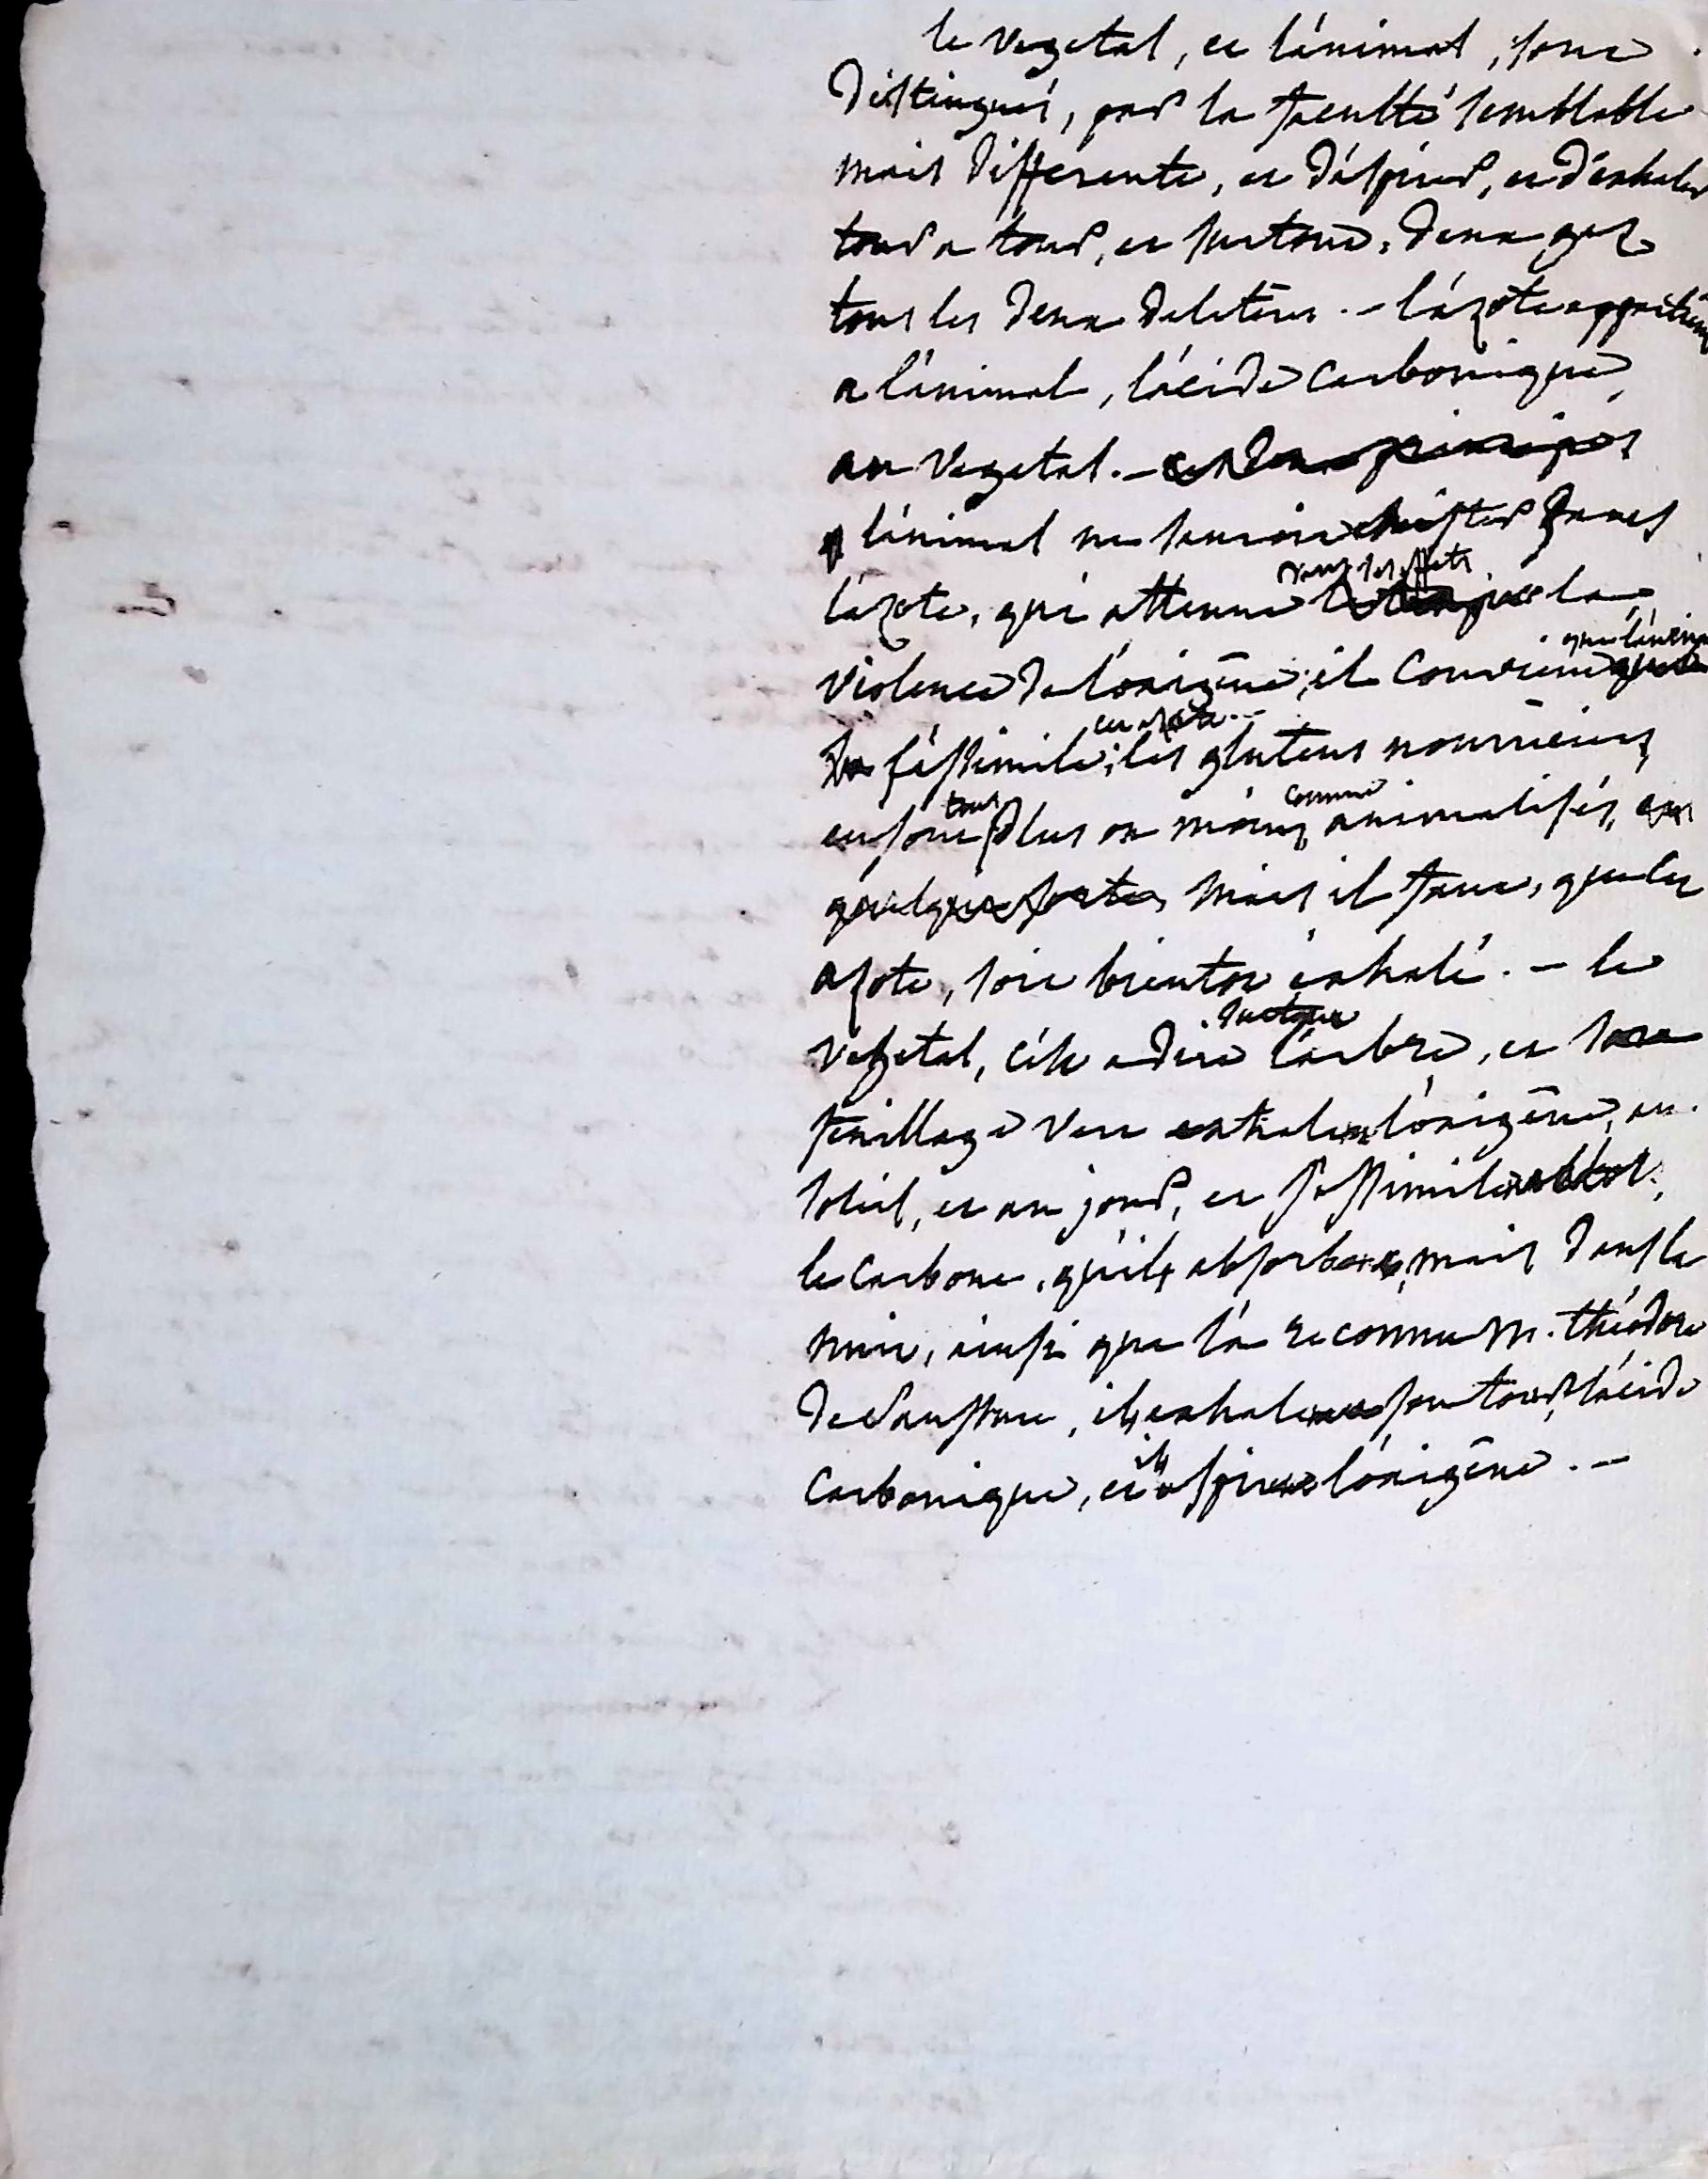 le vegetal, et l'animal, sont
distingués, par la faculté semblable
mais differente, et d'aspirer, et d'exhaler
tour a tour, et surtout, deux gaz
tous les deux deleteres. - l'azote appartient
a l'animal, l'acide carbonique,
au vegetal. - ces deux principes
l'animal ne sauroit exister sans
dans ses effets
l'azote, qui attenue la
que l'animal
violence de l'oxigène; il convient
cet azote. -
s'assimile; les glutens nourriciers,
tous comme
en sont plus ou moins animalisés, en
quelque sorte, mais il faut, que cet
azote, soit bientot exhalé. - le
vegetal, c'est a dire l'arbre, et son
feuillage vert exhalent l'oxigène, au
soleil, et au jour, et s'assimilent
le carbone, qu'ils absorbent, mais dans la
nuit, ainsi que l'a reconnu M. théodore
de Saussure, ils exhalent a son tour, l'acide
ils
carbonique, et aspirent l'oxigène. -